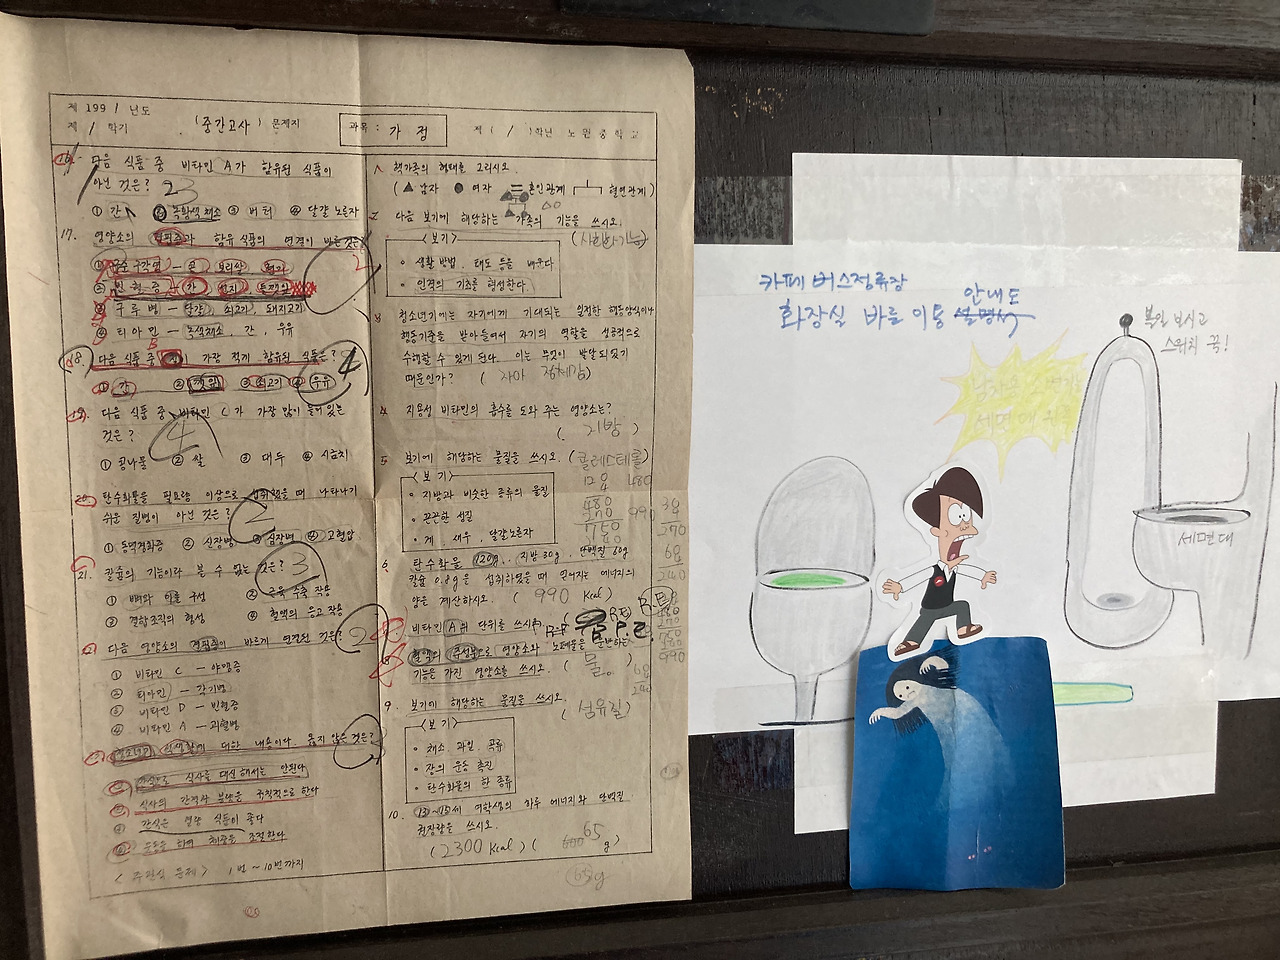 제 1991 년도
제 1 학기
(중간고사) 문제지
과목 : 가 정
제 ( 1 )학년 노원중학교
16. 다음 식품 중 비타민 A가 함유된 식품이
아닌 것은?
① 간 ② 녹황색채소 ③ 버터 ④ 달걀 노른자
17. 영양소의 결핍증과 함유 식품의 연결이 바른 것은?
① 구순구각염 — 콩 보리쌀
② 빈혈증 — 간
③ 구루병 — 달걀, 쇠고기, 돼지고기
④ 티아민 — 녹색채소, 간, 우유
18. 다음 식품 중 가장 적게 함유된 식품은? 4
① 간 ③ 쇠고기 ④ 우유
19. 다음 식품 중 비타민 C가 가장 많이 들어있는
것은? 4
① 콩나물 ② 쌀 ③ 대두 ④ 시금치
20. 탄수화물을 필요량 이상으로 섭취했을 때 나타나기
쉬운 질병이 아닌 것은? 2
① 동맥경화증 ② 신장병 ③ 심장병 ④ 고혈압
21. 칼슘의 기능이라 볼 수 없는 것은? 3
① 뼈와 이를 구성 ② 근육 수축 작용
③ 결합조직의 형성 ④ 혈액의 응고 작용
22. 다음 영양소의 결핍증이 바르게 연결된 것은? 2
① 비타민 C — 야맹증
② 티아민 — 각기병
③ 비타민 D — 빈혈증
④ 비타민 A — 괴혈병
청소년기 식생활에 대한 내용이다. 옳지 않은 것은?
① 간식으로 식사를 대신해서는 안된다
② 식사의 간격과 분량을 규칙적으로 한다
③ 간식은 열량 식품이 좋다
④ 운동을 하면 체중을 조절한다
< 주관식 문제 > 1번 ~ 10번까지
1. 핵가족의 형태를 그리시오.
( ▲ 남자 ● 여자 = 혼인관계 혈연관계 )
2. 다음 보기에 해당하는 가족의 기능을 쓰시오.
(사회화기능)
<보기>
• 생활 방법, 태도 등을 배운다
• 인격의 기초를 형성한다
3 청소년기에는 자기에게 기대되는 일정한 행동양식이나
행동기준을 받아들여서 자기의 역할을 성공적으로
수행할 수 있게 된다. 이는 무엇이 발달되었기
때문인가? ( 자아 정체감 )
4. 지용성 비타민의 흡수를 도와 주는 영양소는?
( 지방 )
5. 보기에 해당하는 물질을 쓰시오. (콜레스테롤)
<보기>
• 지방과 비슷한 종류의 물질
• 끈끈한 성질
• 게, 새우, 달걀노른자
6. 탄수화물 120g, 지방 30g, 단백질 60g
칼슘 0.8g을 섭취하였을 때 얻어지는 에너지의
양을 계산하시오. ( 990 Kcal )
비타민 A의 단위를 쓰시오
8 혈액의 주성분으로 영양소와 노폐물을 운반하는
기능을 가진 영양소를 쓰시오. ( 물. )
9. 보기에 해당하는 물질을 쓰시오. ( 섬유질 )
<보기>
• 채소, 과일, 곡류
• 장의 운동 촉진
• 탄수화물의 한 종류
10. 13~15세 여학생의 하루 에너지와 단백질
권장량을 쓰시오.
(2300 Kcal) ( 65 g )
카페 버스정류장
화장실 바른 이용 안내도
볼일 보시고
스위치 꾹!
남자용 소변기
세면대